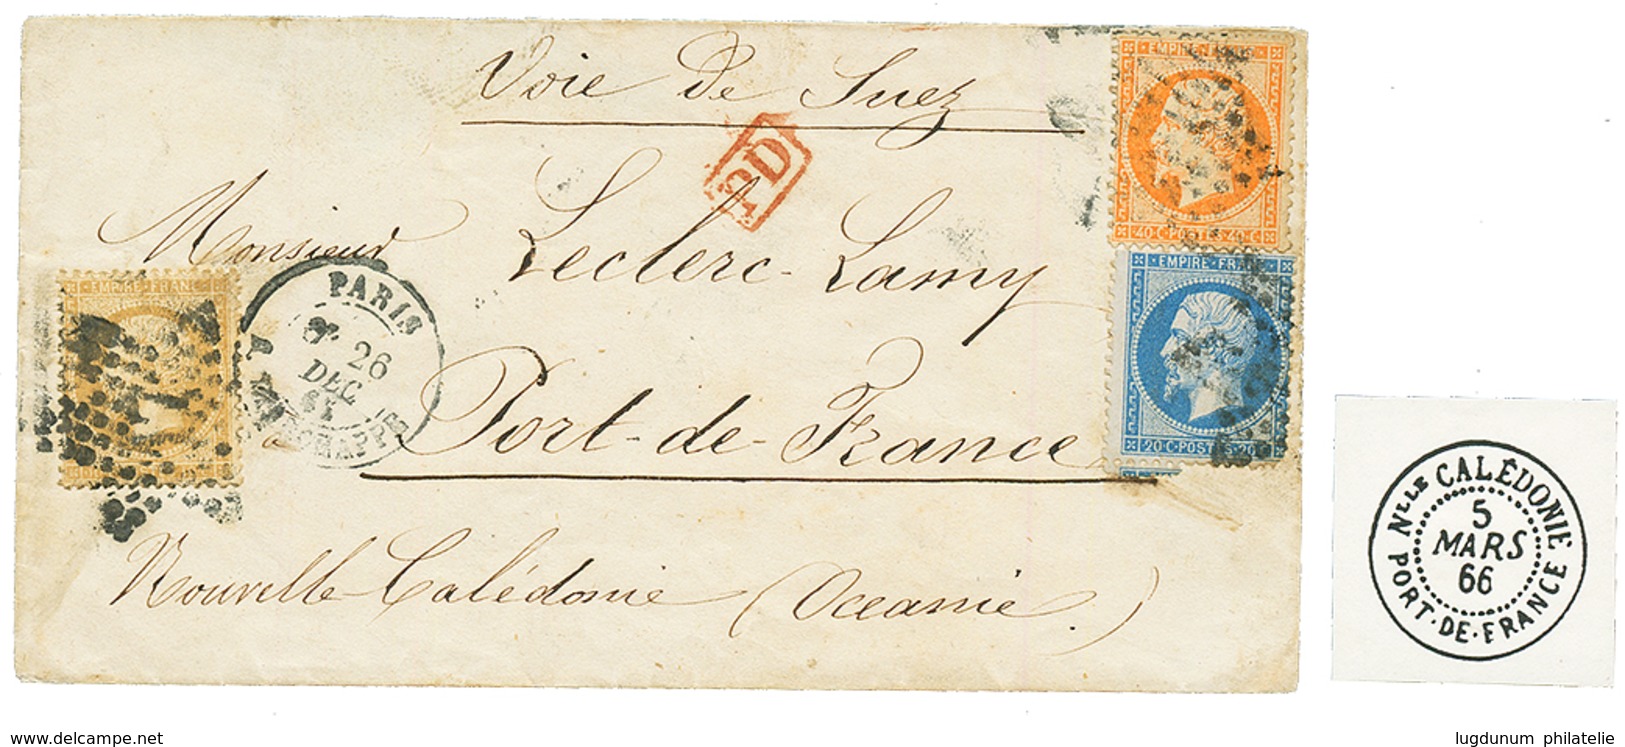 Voie de Suez
PD
Monsieur Leclerc-Lamy
à Port-de-France
Nouvelle Calédonie (Océanie.)
EMPIRE FRANC
40 C POSTES 40 C
EMPIRE FRAN
20 C POSTES 20 C
EMPIRE FRANC
PARIS
26
DEC
65
Nlle CALÉDONIE
5
MARS
66
PORT-DE-FRANCE
www.delcampe.net
lugdunum philatelie